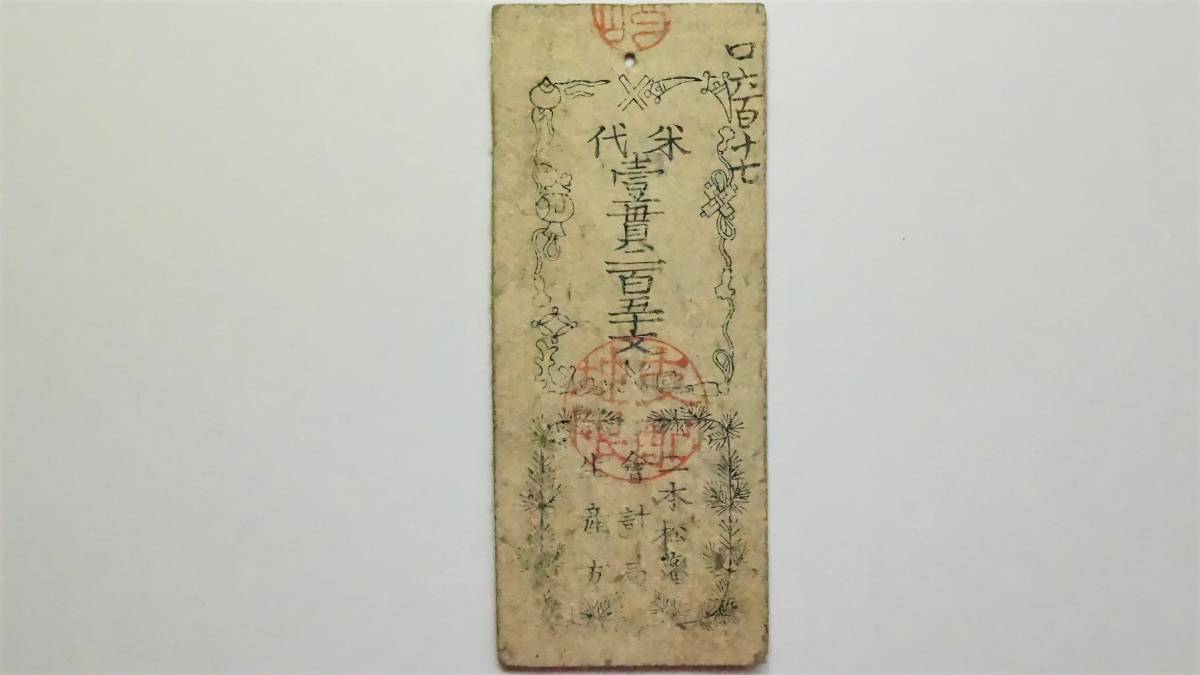 口六百十七
米代
壹貫二百五十文
二本松藩
會計局
生産方